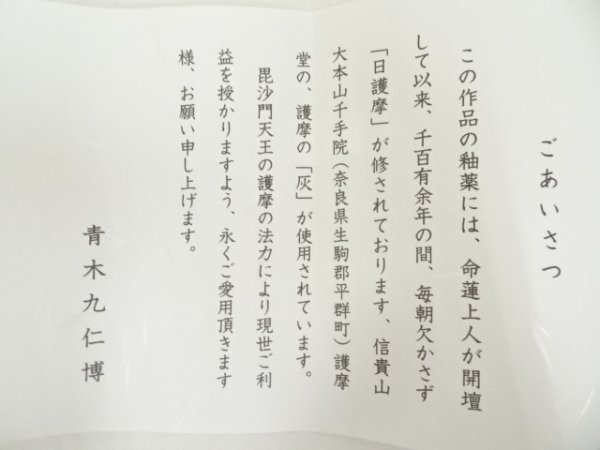 ごあいさつ
この作品の釉薬には、命蓮上人が開壇
して以来、千百有余年の間、毎朝欠かさず
「日護摩」が修されております、信貴山
大本山千手院（奈良県生駒郡平群町）護摩
堂の、護摩の「灰」が使用されています。
毘沙門天王の護摩の法力により現世ご利
益を授かりますよう、永くご愛用頂きます
様、お願い申し上げます。
青木九仁博